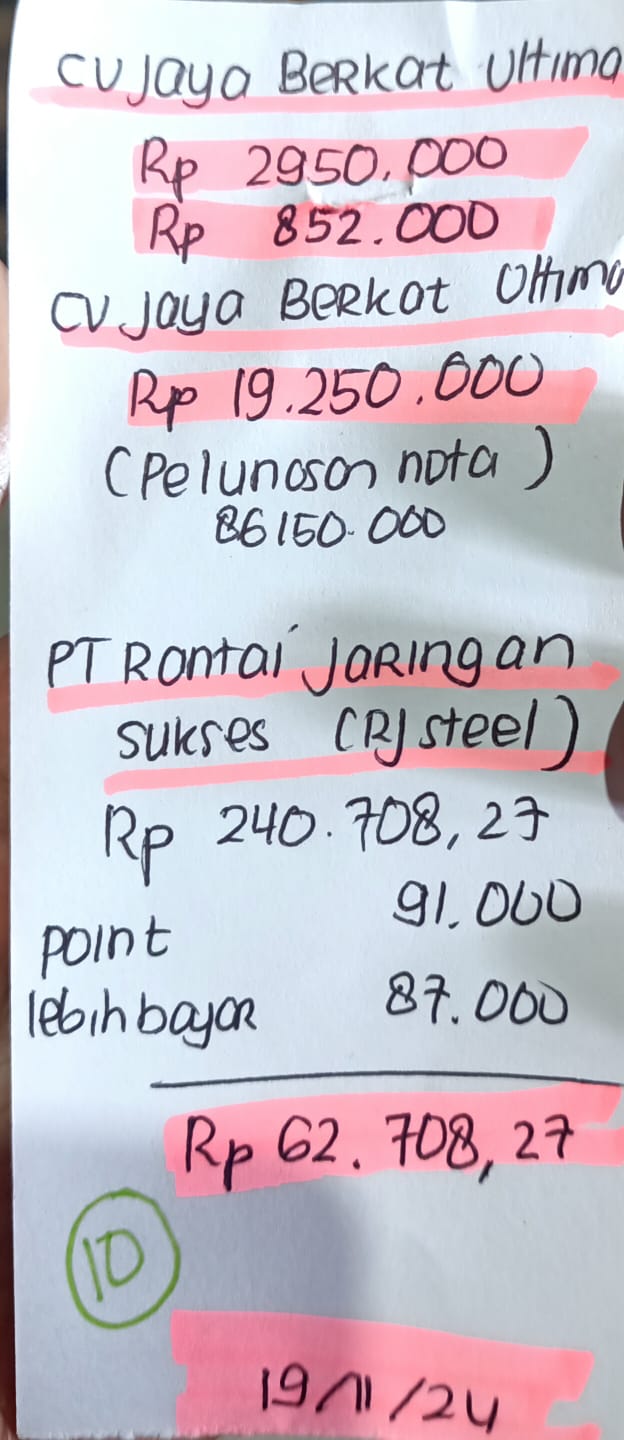 CV Jaya Berkat Ultima
Rp 2950.000
Rp 852.000
CV Jaya Berkat Ultima
Rp 19.250.000
(Pelunasan nota)
86150.000
PT Rantai Jaringan
Sukses (RJ steel)
Rp 240.708,27
91.000
point
lebih bayar 87.000
Rp 62.708,27
10
19/11/24